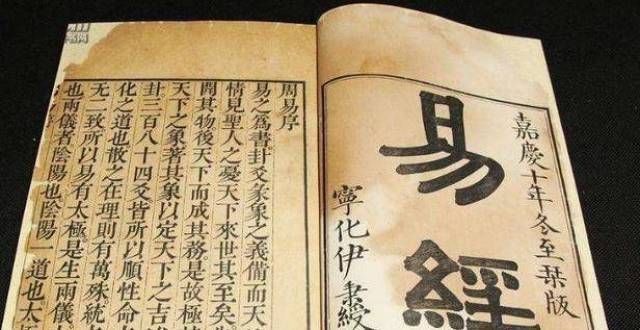 嘉慶十年冬至栞版
易經
寧化伊秉綬
周易序
易之爲書卦爻彖象之義備而天
情見聖人之憂天下來世其至矣
開其物後天下而成其務是故極
天下之象著其象以定天下之吉
卦三百八十四爻皆所以順性命
化之道也散之在理則有萬殊統
無二致所以易有太極是生兩儀
也兩儀者陰陽也陰陽一道也太